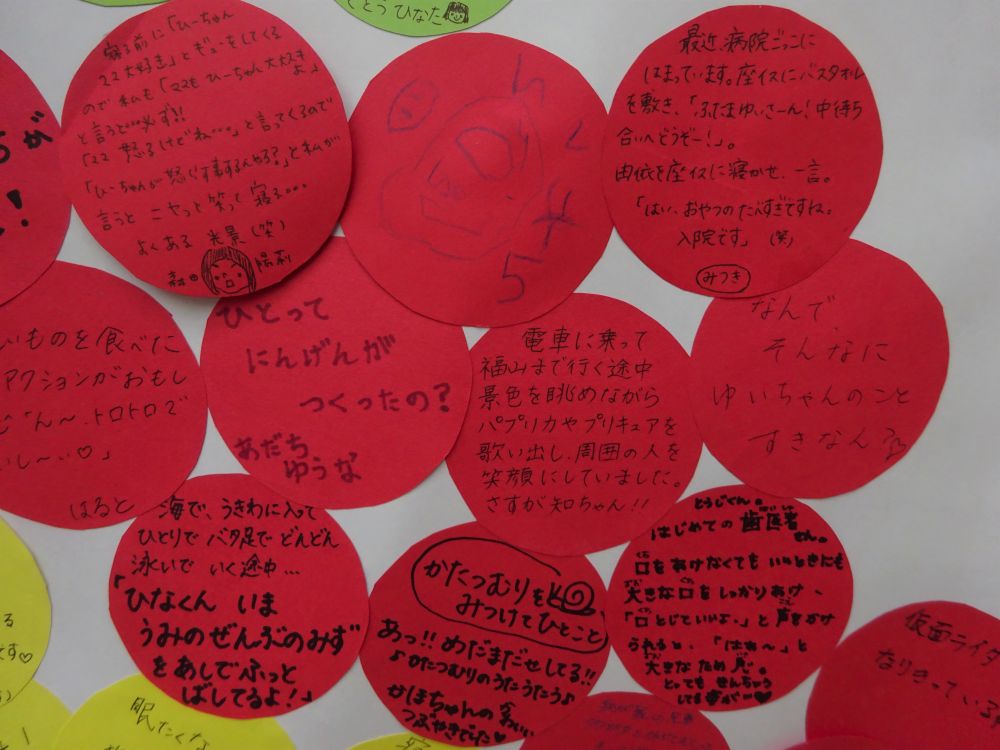 とう ひなた
寝る前に「ひーちゃん
ママ大好き」とギューをしてくる
ので私も「ママも ひーちゃん大大スキ
よ」
と言うと…必ず!!
「ママ 怒るけどね…」と言ってくるので
「ひーちゃんが怒らす事するんやろ?」と私が
言うと ニヤッと笑って寝る…
よくある 光景(笑)
森田 陽莉
5
最近、病院ごっこに
はまっています。座イスにバスタオル
を敷き、「ふたまゆいさーん!中待ち
合いへどうぞー!」。
由依を座イスに寝かせ、一言。
「はい、おやつのたべすぎですね。
入院です」(笑)
みつき
いものを食べた
アクションがおもし
「ん〜、トロトロで
いし〜い♡」
はると
ひとって
にんげんが
つくったの?
あだち
ゆうな
電車に乗って
福山まで行く途中
景色を眺めながら
パプリカやプリキュアを
歌い出し、周囲の人を
笑顔にしていました。
さすが知ちゃん!!
なんで
そんなに
ゆいちゃんのこと
すきなん?
海で、うきわに入って
ひとりで バタ足で どんどん
泳いで いく途中…
「ひなくん いま
うみのぜんぶのみず
をあしでふっと
ばしてるよ!」
かたつむりを
みつけてひとこと
あっ!!めだまだせしてる!!
♪かたつむりのうたうたう♪
かほちゃんの かわいい
つぶやきでした♥
とうじくん。
はじめての 歯医者さん。
口をあけなくても いいときにも
大きな口をしっかりあけ、
「口とじていいよ。」と声をかけ
られると、「はぁ〜」と
大きなため息。
とっても きんちょう
してますが…♥
仮面ライダ
なりきっている
眠たくな